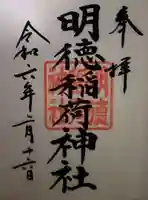 奉拝
明徳稲荷神社
令和六年二月十六日